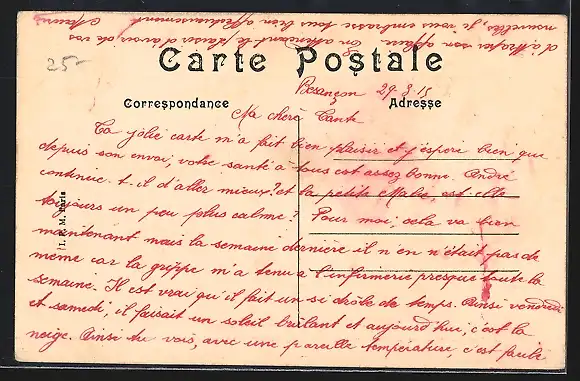 25-
Carte Postale
Besançon 29.3.15
Correspondance
Adresse
Ma chère Tante
Ta jolie carte m'a fait bien plaisir et j'espère bien que
depuis son envoi, votre santé à tous est assez bonne. André
continue-t-il d'aller mieux? et la petite Malie, est-elle
toujours un peu plus calme? Pour moi, cela va bien
maintenant mais la semaine dernière il n'en n'était pas de
meme car la grippe m'a tenu à l'infirmerie presque toute la
semaine. Il est vrai qu'il fait un si drôle de temps. Ainsi vendredi
et samedi, il faisait un soleil brûlant et aujourd'hui, c'est la
neige. Ainsi tu vois, avec une pareille température, c'est facile
d'attraper son affaire. En attendant le plaisir d'avoir de vos
nouvelles, je vous embrasse tous bien affectueusement
I. P. M. Paris